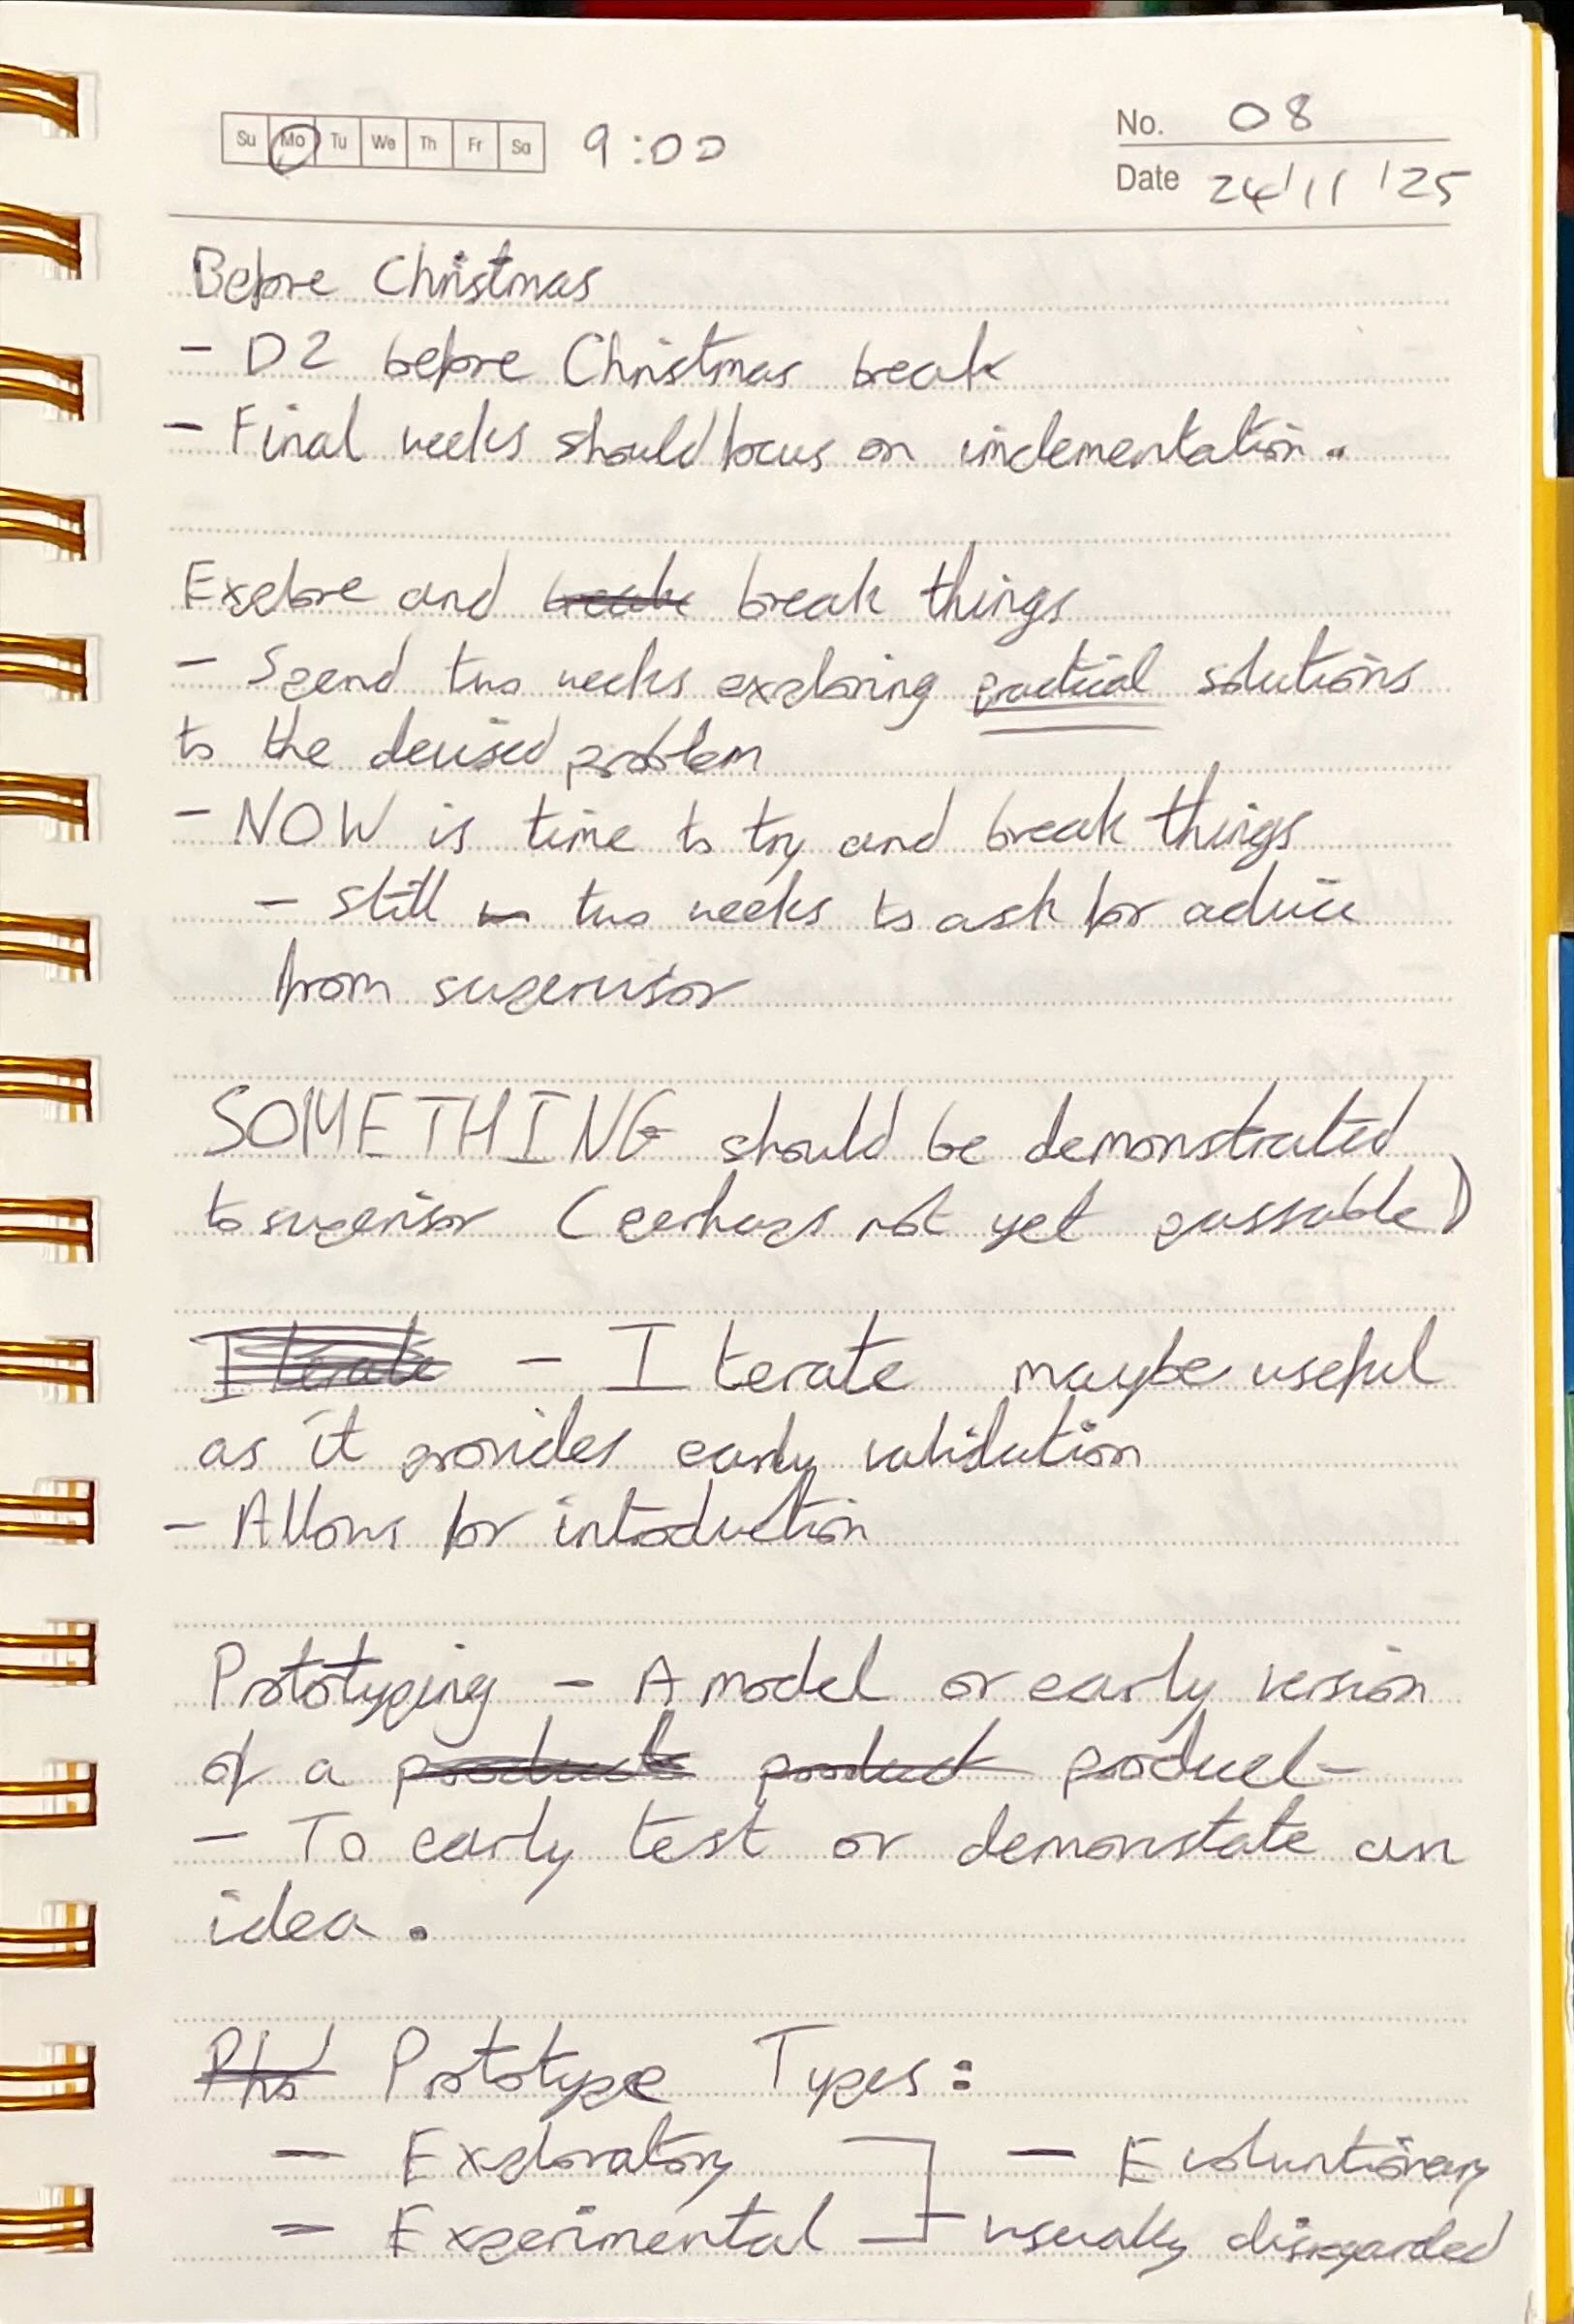 Su Mo Tu We Th Fr Sa 9:00
No. 08
Date 24/11/25
Before Christmas
- D2 before Christmas break
- Final weeks should focus on implementation.
Explore and break break things
- Spend two weeks exploring practical solutions
to the devised problem
- NOW is time to try and break things
- still two weeks to ask for advice
from supervisor
SOMETHING should be demonstrated
to supervisor (perhaps not yet passable)
Iterate - Iterate maybe useful
as it provides early validation
- Allows for introduction
Prototyping - A model or early version
of a product product product
- To early test or demonstate an
idea.
Prototype Types:
- Exploratory - Evoluntionary
- Experimental - usually disregarded